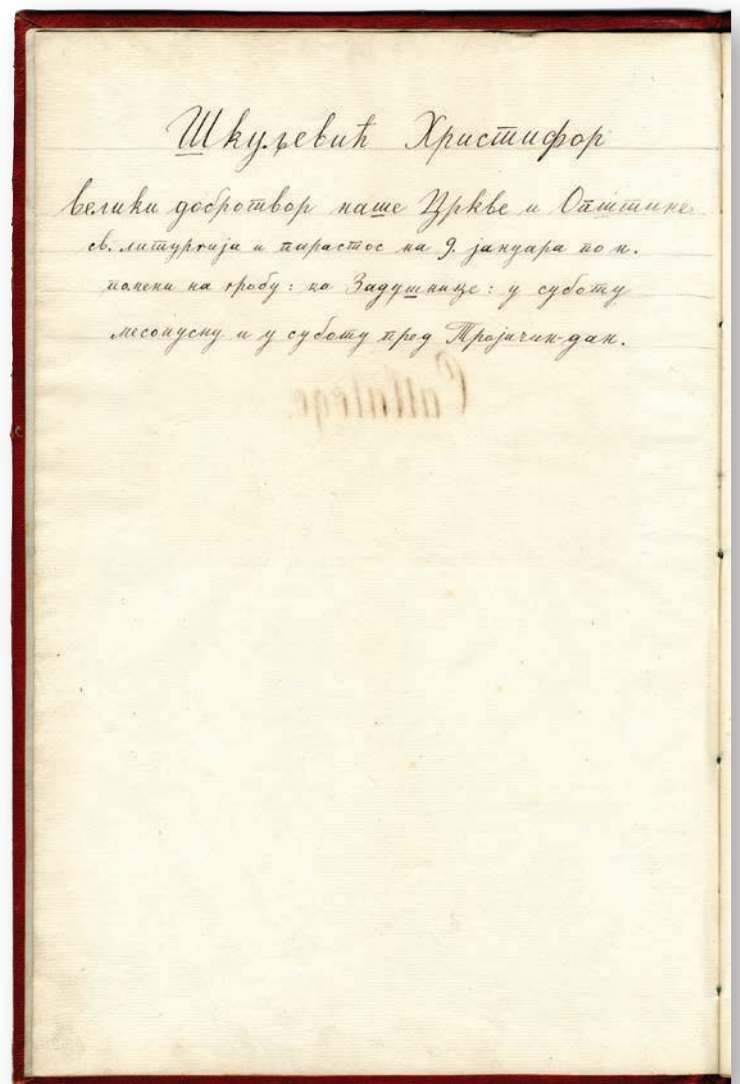 Шкуљевић Христифор
велики добротвор наше Цркве и Општине
св. литургија и парастос на 9. јануара по н.
помени на гробу: на Задушнице: у суботу
месопусну и у суботу пред Тројичин-дан.